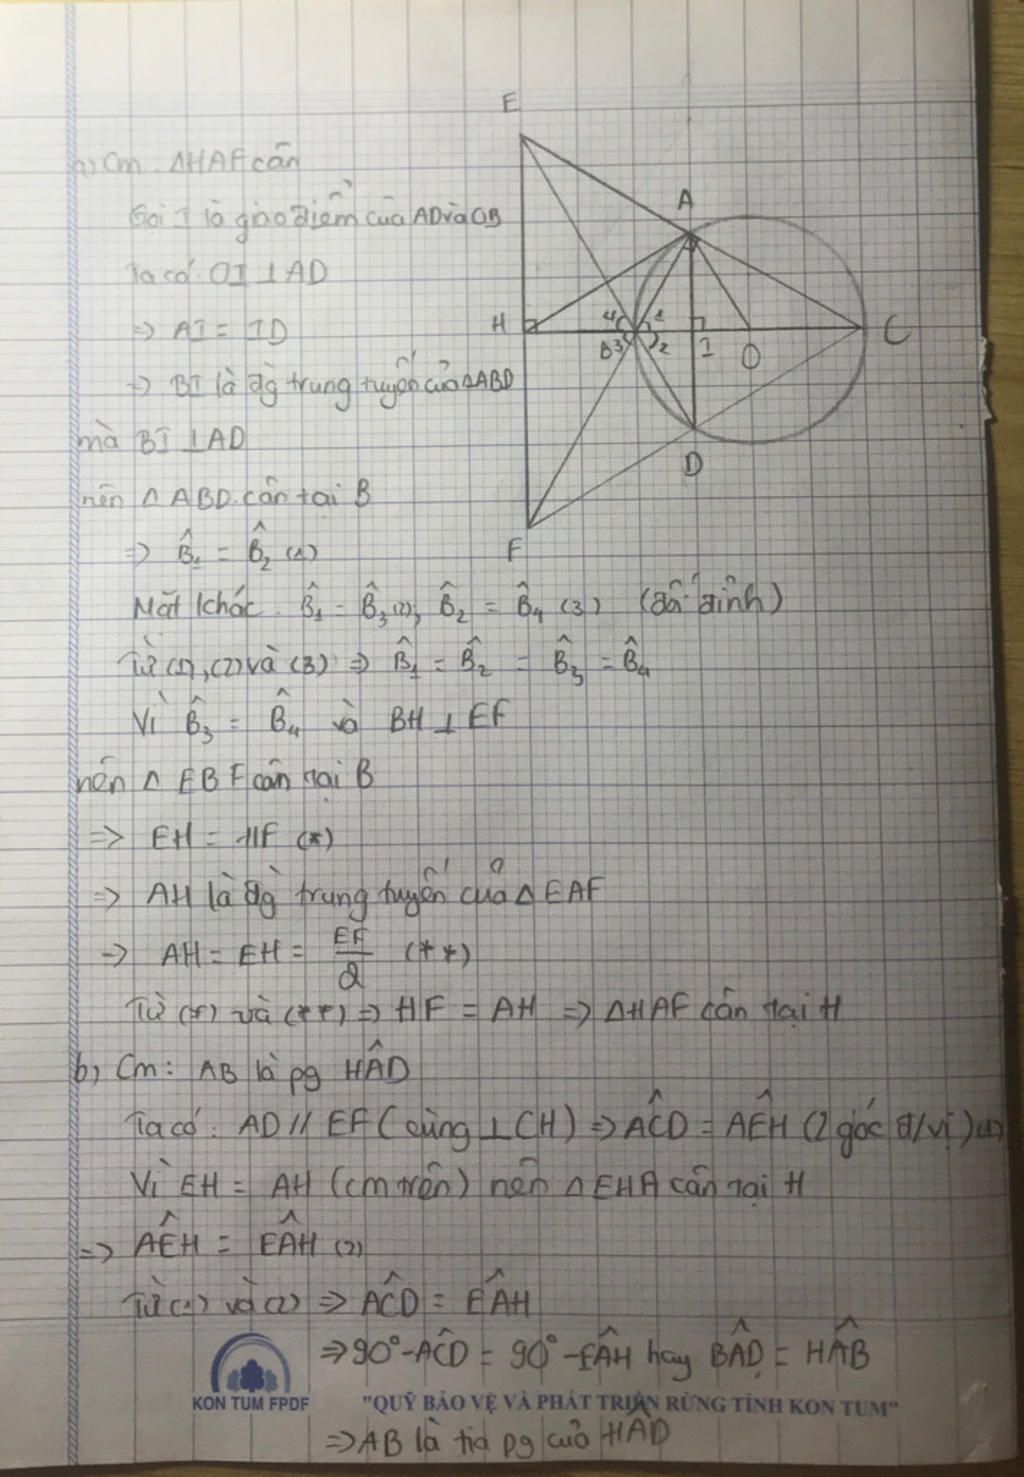 a) Cm: ΔHAF cân
Gọi I là giao điểm của AD và OB
Ta có: OI ⊥ AD
⇒ AI = ID
⇒ BI là đg trung tuyến của ΔABD
mà BI ⊥ AD
nên Δ ABD cân tại B
⇒ B̂₁ = B̂₂ (1)
Mặt khác: B̂₁ = B̂₃ (2); B̂₂ = B̂₄ (3) (đối đỉnh)
Từ (1), (2) và (3) ⇒ B̂₁ = B̂₂ = B̂₃ = B̂₄
Vì B̂₃ = B̂₄ và BH ⊥ EF
nên Δ EBF cân tại B
⇒ EH = HF (*)
⇒ AH là đg trung tuyến của Δ EAF
⇒ AH = EH = EF/2 (**)
Từ (*) và (**) ⇒ HF = AH ⇒ ΔHAF cân tại H
b) Cm: AB là pg HÂD
Ta có: AD // EF (cùng ⊥ CH) ⇒ AĈD = AÊH (2 góc đ/vị) (1)
Vì EH = AH (cm trên) nên Δ EHA cân tại H
⇒ AÊH = EÂH (2)
Từ (1) và (2) ⇒ AĈD = EÂH
⇒ 90° - AĈD = 90° - EÂH hay BÂD = HÂB
⇒ AB là tia pg của HÂD
E
A
H
4
1
B
3
2
I
O
C
D
F
KON TUM FPDF
"QUỸ BẢO VỆ VÀ PHÁT TRIỂN RỪNG TỈNH KON TUM"